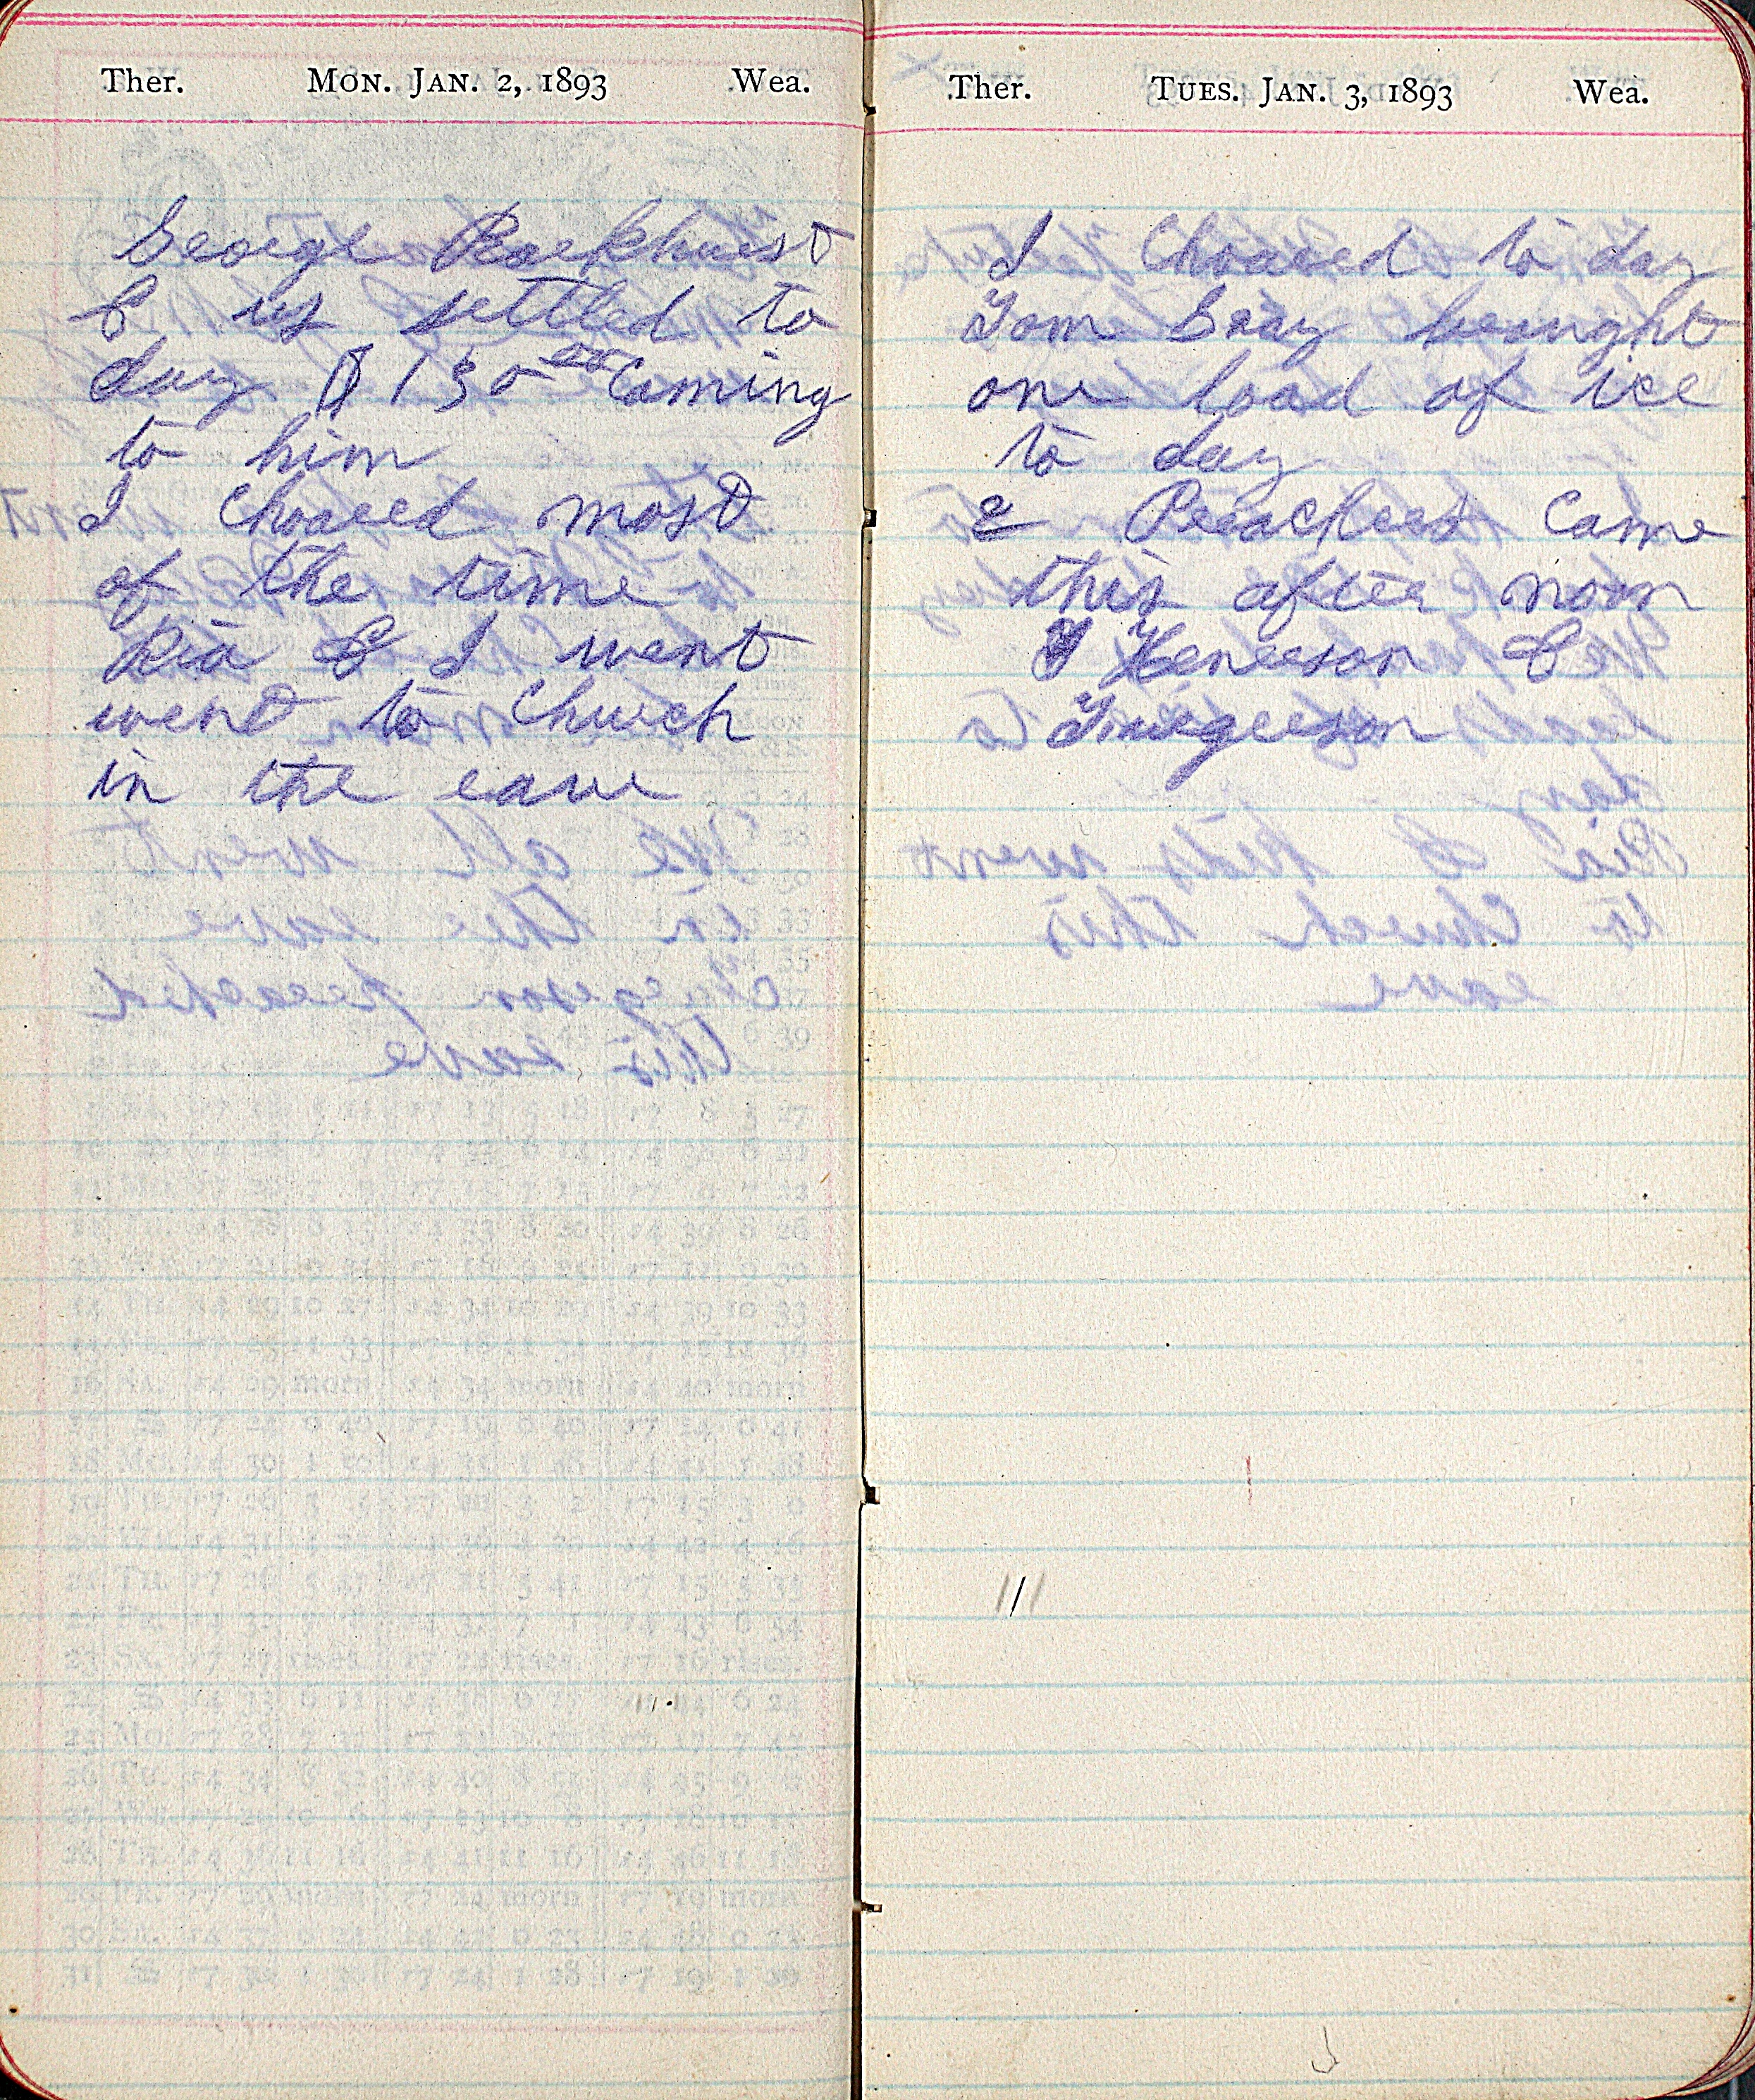 Ther. MON. JAN. 2, 1893 Wea.
George Roekhurst
& us settled to
day $ 130 00 Coming
to him
I Choared most
of the time
Ria & I went
went to Church
in the eave
Ther. TUES. JAN. 3, 1893 Wea.
I Choared to day
Tom Gray brought
one load of ice
to day
2 Preachers Came
this after noon
Henerson &